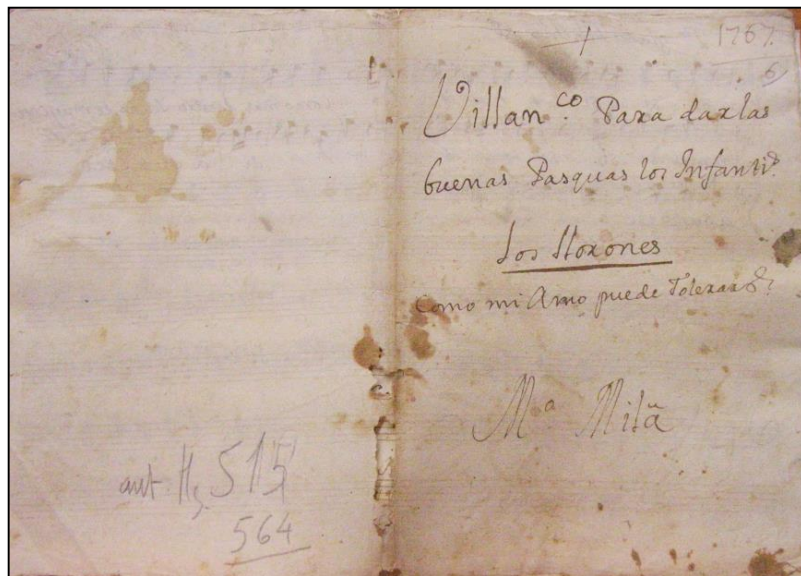 1767.
6
Villan.co Para darlas
buenas Pasquas los Infanti.s
Los Llorones
como mi Amo puede Tolerar &.
M.a Milã
aut. H, 515
564